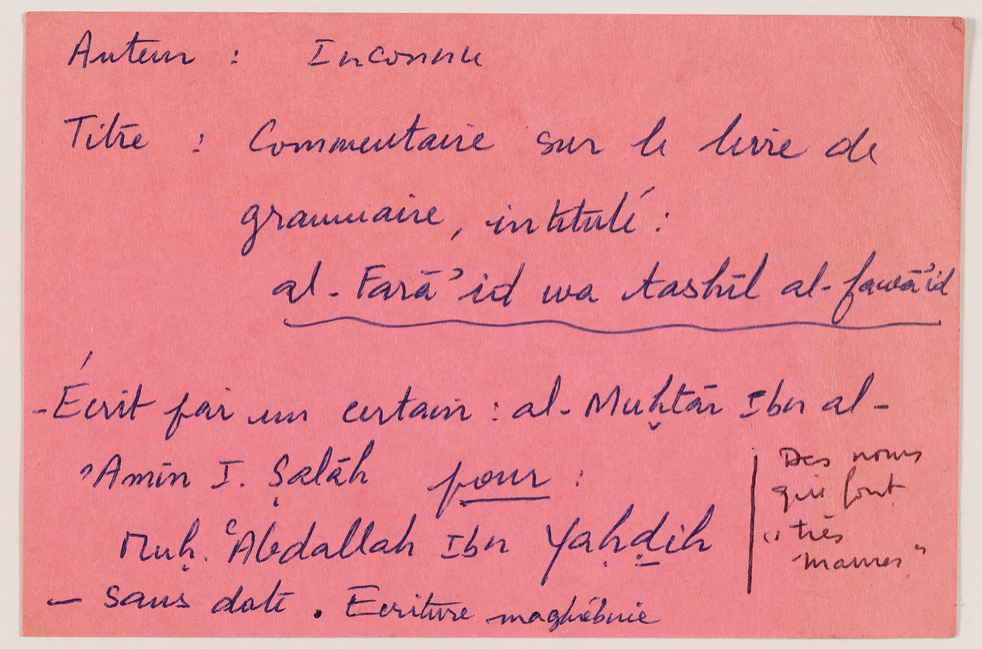 Auteur : Inconnu
Titre : Commentaire sur le livre de
grammaire, intitulé :
al-Farā'id wa tashīl al-fawā'id
- Écrit par un certain : al-Muḫtār Ibn al-
'Amīn I. Ṣalāh pour :
Muḥ. ʿAbdallah Ibn Yaḥḏih
- Sans date. Ecriture maghébnie
Des noms
qui font
"très
maures"